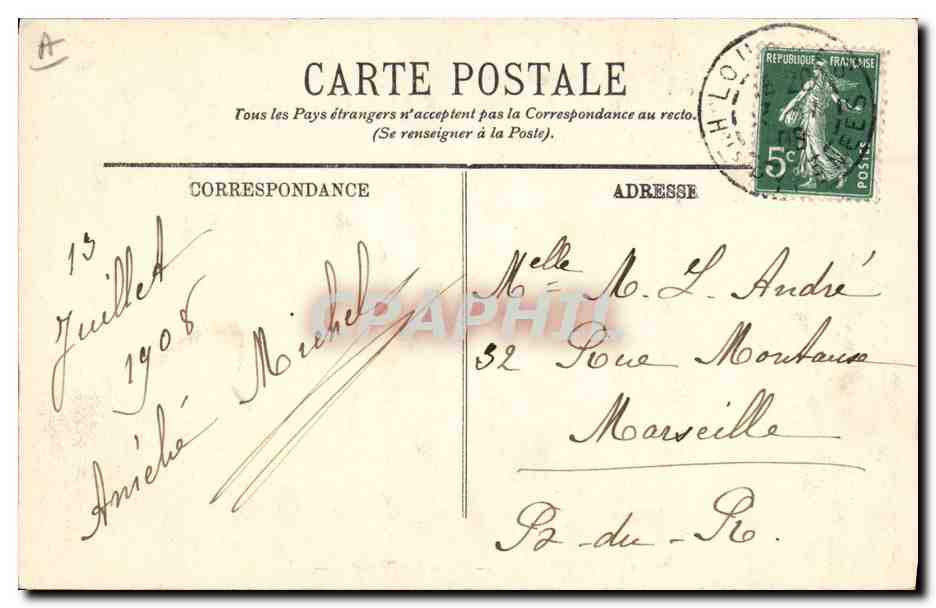 A
CARTE POSTALE
Tous les Pays étrangers n'acceptent pas la Correspondance au recto.
(Se renseigner à la Poste).
REPUBLIQUE FRANÇAISE
5c
POSTES
CORRESPONDANCE
ADRESSE
13
Juillet
1908
Michel
Melle M. L. André
32 Rue
Marseille
B-du-R.
CPAPHIL